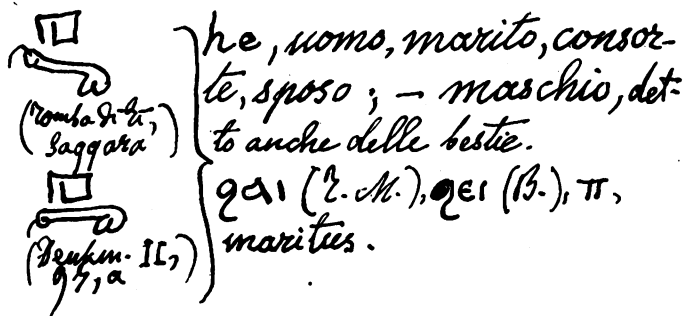 (Tomba di Ti,
Saqqara)
(Denkm. II,
97, a)
he, uomo, marito, consor-
te, sposo; — maschio, det-
to anche delle bestie.
ϩⲁⲓ (T. M.), ϩⲉⲓ (B.), ⲡ,
maritus.